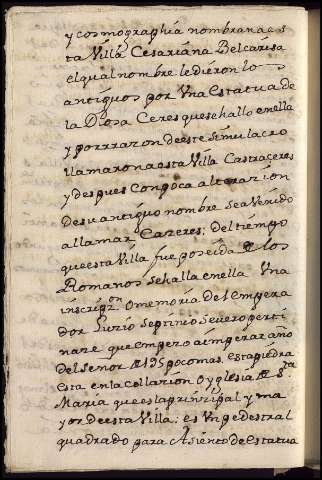 y cosmographia nombran aes
ta Villa Cesariana Belcarisa
el qual nombre le dieron lo
antiguos por Vna Estatua de
la Diosa Ceres que se hallo en ella
y por rrazon de este simulacro
llamaron a esta Villa Castraceres
y despues con poca alterazion
de su antiguo nombre se a Venido
a llamar Cazeres; del tiempo
que esta Villa fue poseida de los
Romanos se halla en ella Vna
inscripzon o memoria del empera
dor Luzio Septinio Severo perti
naze que empero a imperar año
del señor de 195 pocomas. esta piedra
esta en la collazion o yglesia de Sta
Maria que es la prinzipal y ma
yor de esta Villa; es Vn pedestral
quadrado para Asiento de Estatua